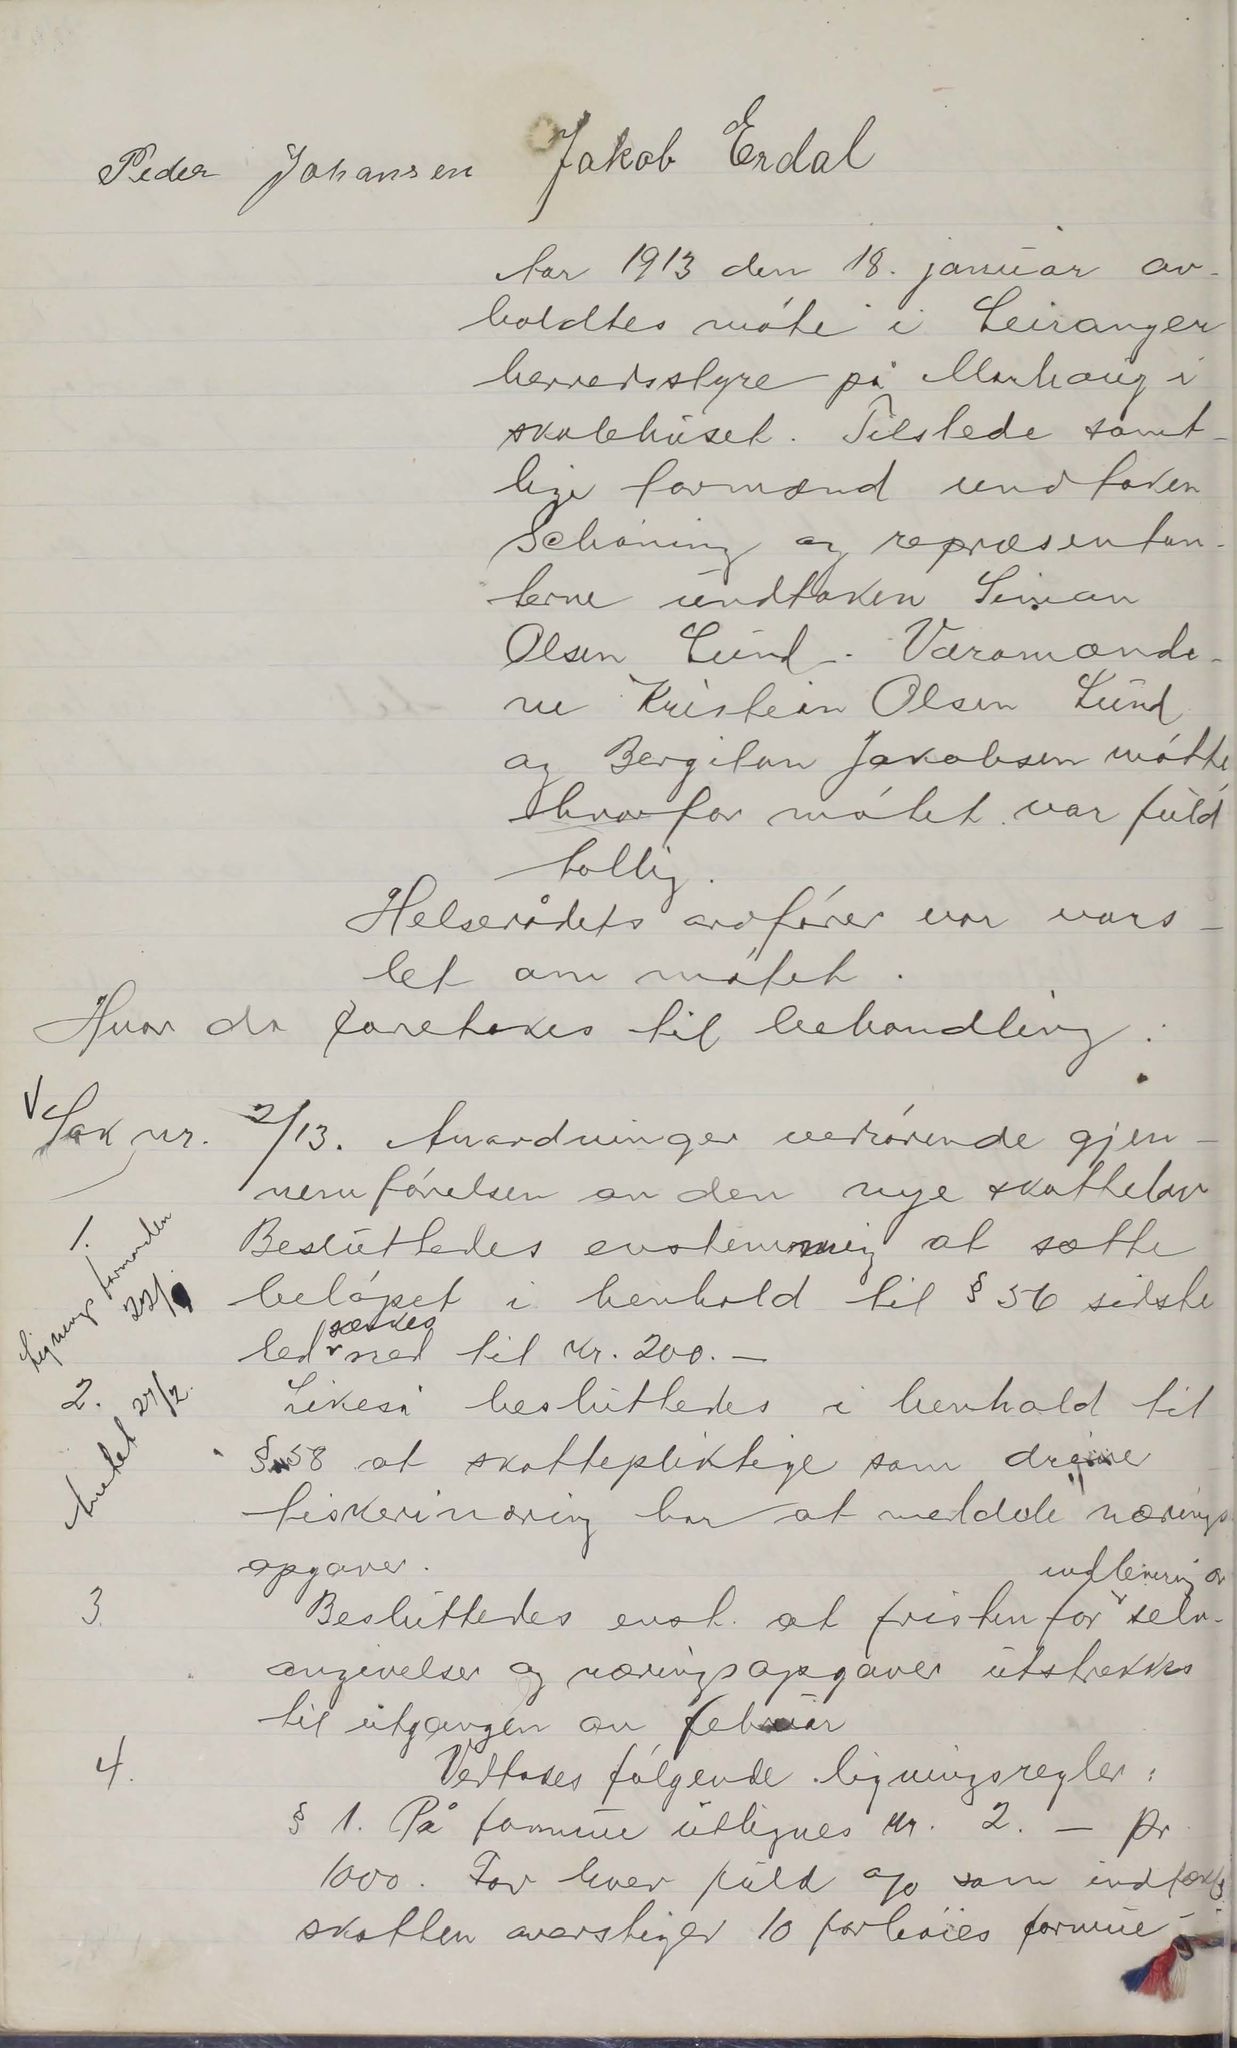 Peder Johansen Jakob Erdal
Aar 1913 den 18. januar av-
holdtes møte i Leiranger
herredsstyre på Marhaug i
skolehuset. Tilstede samt-
lige formænd undtaken
Schøning og repræsentan-
terne undtaken Simon
Olsen Lund. Varamænde-
ne Kristian Olsen Lund
og Bergiton Jakobsen møtte
hvorfor møtet var fuld
tallig.
Helserådets ordfører var vars-
let om møtet.
Hvor da foretokes til behandling:
Sak nr. 2/13. Anordninger vedrørende gjen-
nemførelsen av den nye skattelov
1. Besluttedes enstemmig at sætte
Lignings formanden 22/1
beløpet i henhold til § 56 sidste
led sækkes ned til kr. 200.—
2. Likeså besluttedes i henhold til
27/2.
§ 58 at skattepliktige som driver
fiskerinæring har at meddele nærings
opgaver.
indlevering av
3. Besluttedes enst. at fristen for selv-
angivelser og næringsopgaver utstrækkes
til utgangen av februar
4. Vedtokes følgende ligningsregler:
§ 1. På formue utlignes kr. 2.— pr
1000. For hver fuld % som indtækts
skatten overstiger 10 forhøies formue-